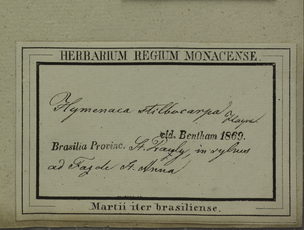 HERBARIUM REGIUM MONACENSE.
Hymenaea stilbocarpa Hayne
vid. Bentham 1869.
Brasilia Provinc. St. Pauly, in sylvis
ad Faz de St. Anna
Martii iter brasiliense.